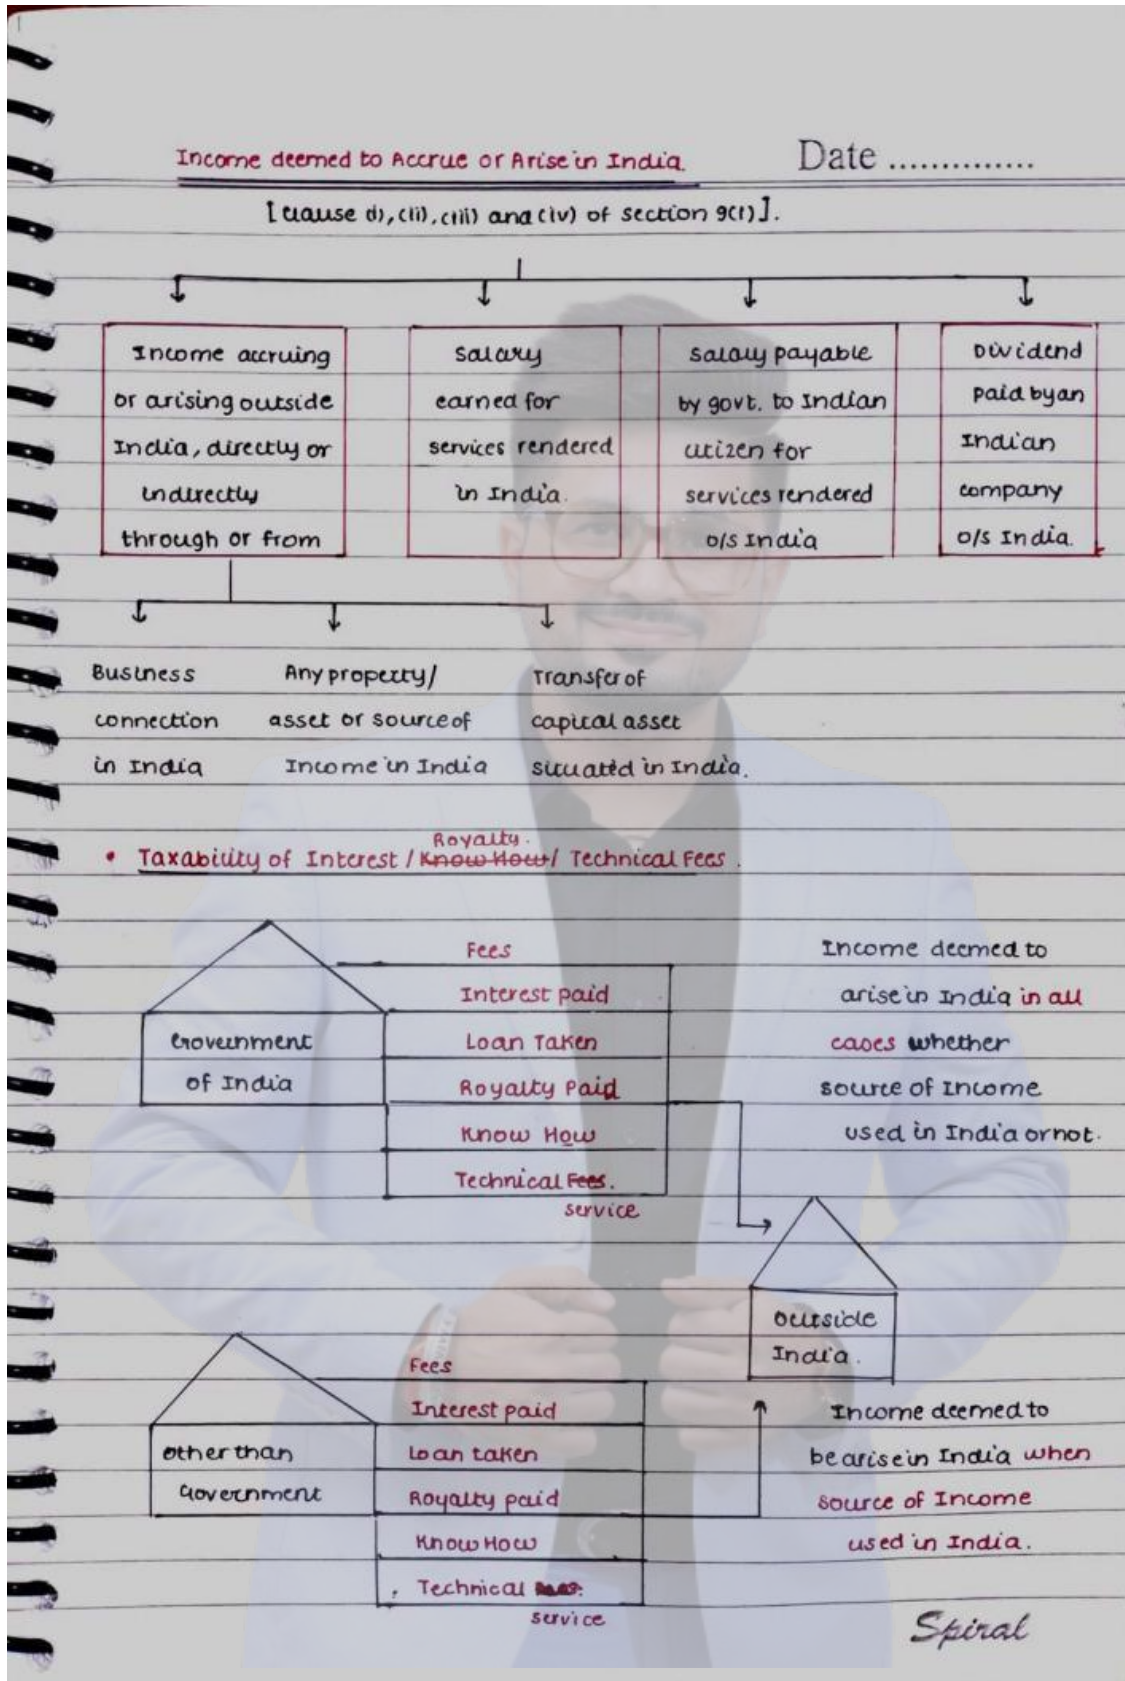 Income deemed to Accrue or Arise in India.
Date ..............
[clause (i), (ii), (iii) and (iv) of section 9(1)].
Income accruing
or arising outside
India, directly or
indirectly
through or from
Salary
earned for
services rendered
in India.
Salary payable
by govt. to Indian
citizen for
services rendered
o/s India
Dividend
paid by an
Indian
company
o/s India.
Business
connection
in India
Any property/
asset or source of
Income in India
Transfer of
capital asset
situated in India.
Royalty.
• Taxability of Interest / Know How / Technical Fees.
Government
of India
Fees
Interest paid
Loan Taken
Royalty Paid
Know How
Technical Fees.
service
Income deemed to
arise in India in all
cases whether
source of Income
used in India or not.
Outside
India.
other than
Government
Fees
Interest paid
Loan taken
Royalty paid
Know How
Technical
service
Income deemed to
be arise in India when
source of Income
used in India.
Spiral